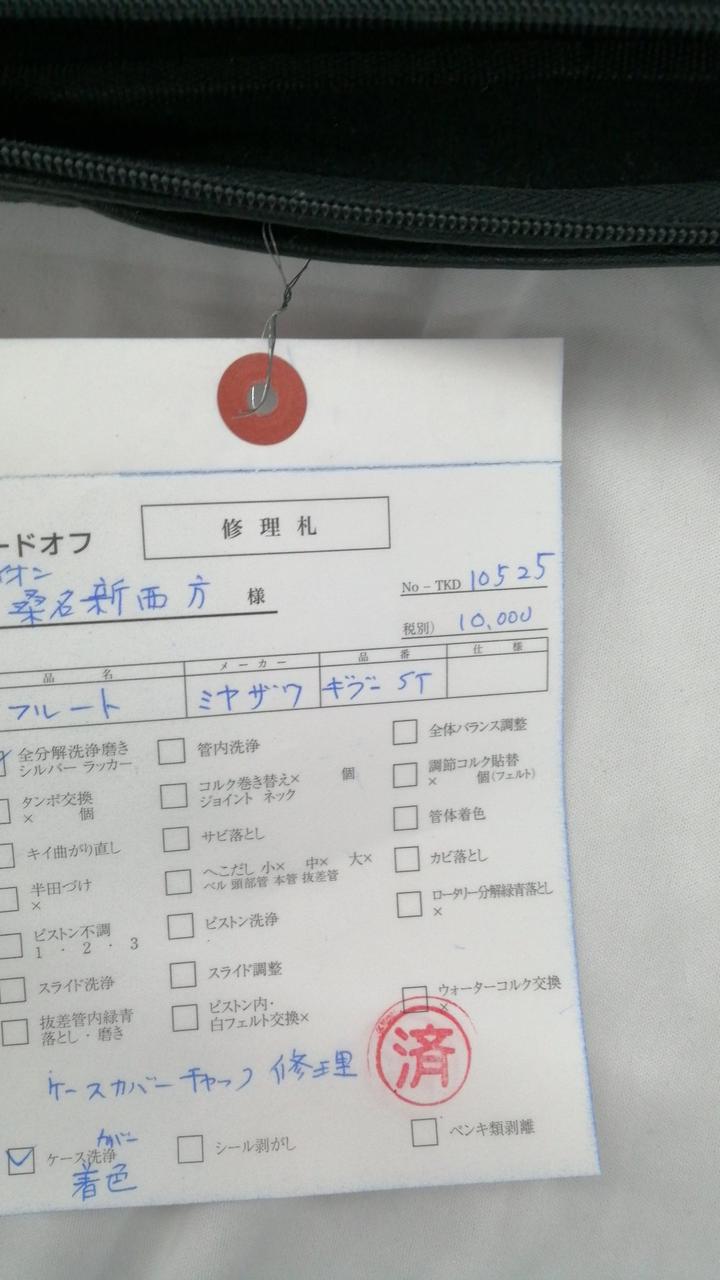 修理札
ードオフ
イオン
桑名新西方 様
No－TKD 10525
税別） 10,000
品 名 メーカー 品 番 仕 様
フルート ミヤザワ ギブニ ST
全分解洗浄磨き
シルバー ラッカー
タンポ交換
× 個
キイ曲がり直し
半田づけ
×
ピストン不調
1 ・ 2 ・ 3
スライド洗浄
抜差管内緑青
落とし・磨き
管内洗浄
コルク巻き替え× 個
ジョイント ネック
サビ落とし
へこだし 小× 中× 大×
ベル 頭部管 本管 抜差管
ピストン洗浄
スライド調整
ピストン内・
白フェルト交換×
全体バランス調整
調節コルク貼替
× 個(フェルト)
管体着色
カビ落とし
ロータリー分解緑青落とし
×
ウォーターコルク交換
×
済
ケースカバーチャック修理
カバー
ケース洗浄
着色
シール剥がし
ペンキ類剥離